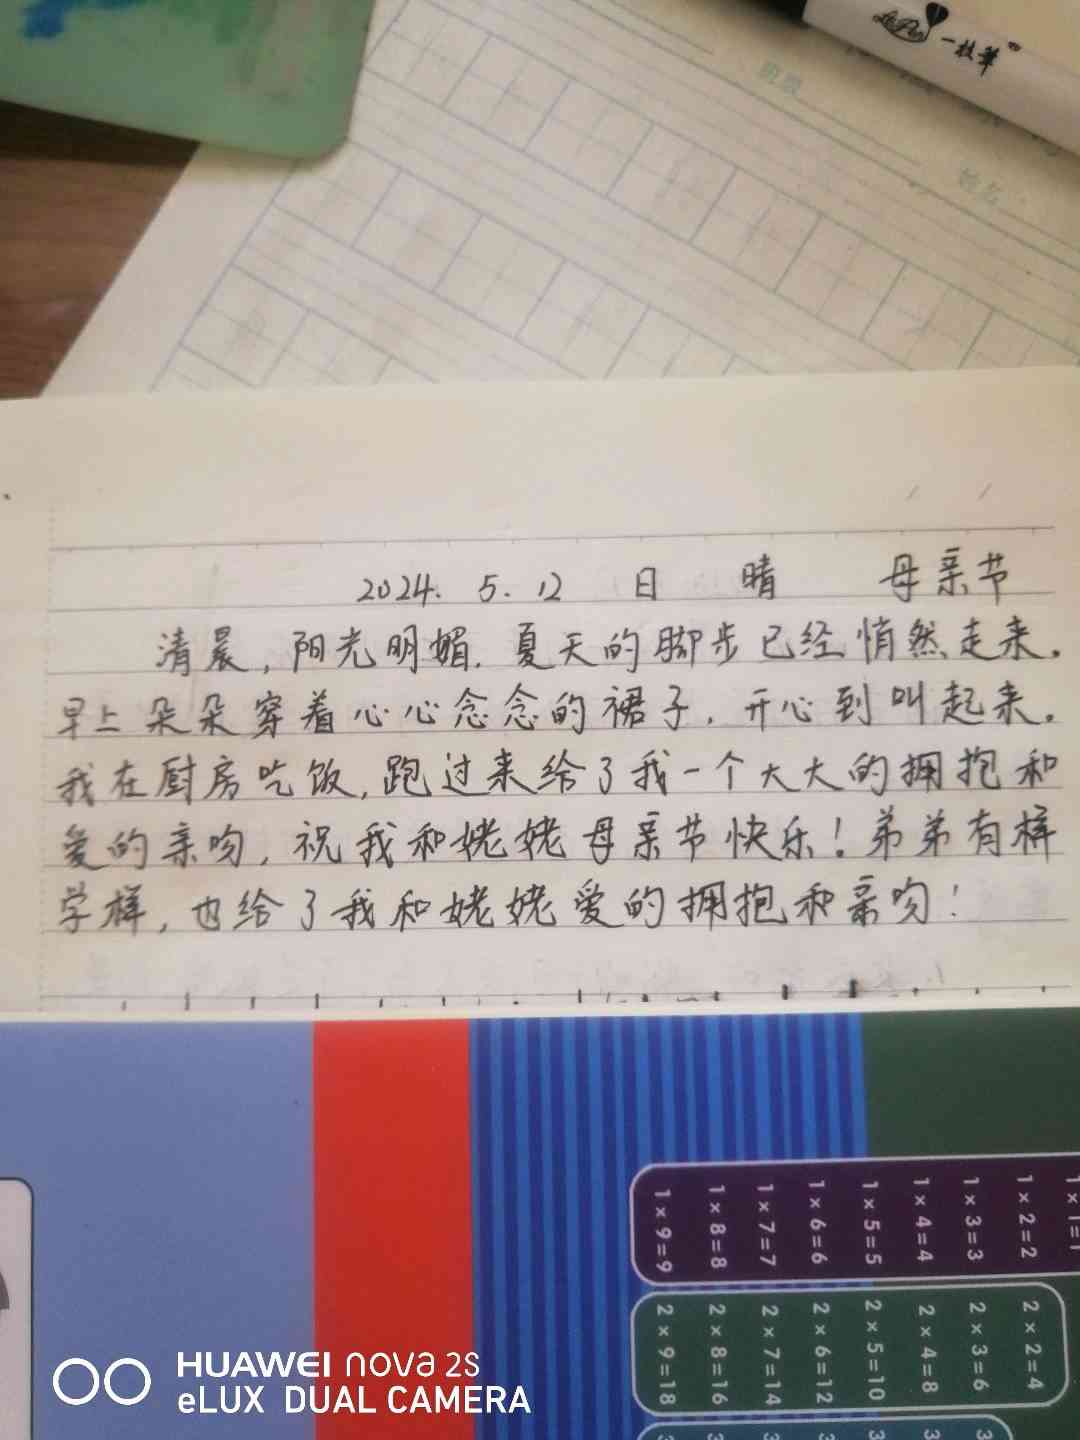 一枝笔
班级
姓名
2024. 5. 12 日 晴 母亲节
清晨,阳光明媚.夏天的脚步已经悄然走来。
早上朵朵穿着心心念念的裙子,开心到叫起来。
我在厨房吃饭,跑过来给了我一个大大的拥抱和
爱的亲吻,祝我和姥姥母亲节快乐!弟弟有样
学样,也给了我和姥姥爱的拥抱和亲吻!
1×1=1
1×2=2
1×3=3
1×4=4
1×5=5
1×6=6
1×7=7
1×8=8
1×9=9
2×2=4
2×3=6
2×4=8
2×5=10
2×6=12
2×7=14
2×8=16
2×9=18
HUAWEI nova 2s
eLUX DUAL CAMERA